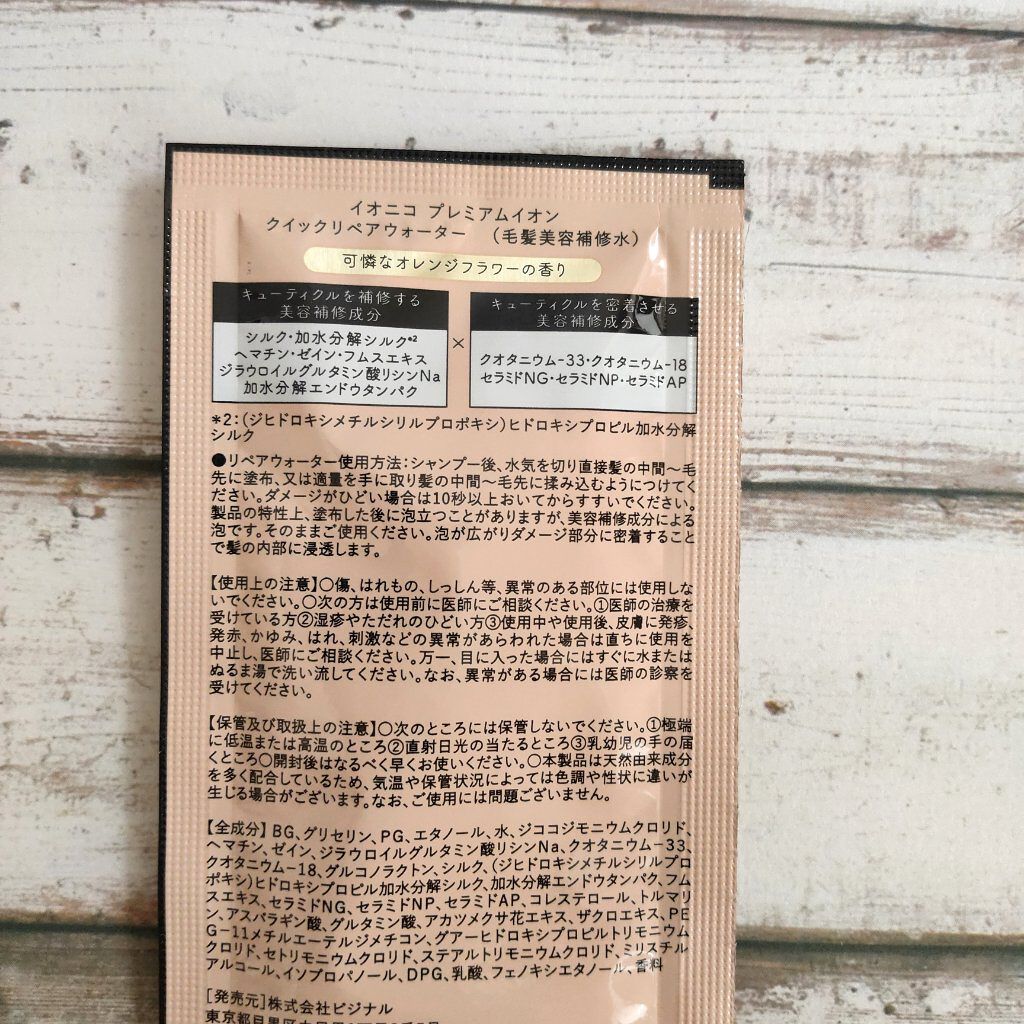 イオニコ プレミアムイオン
クイックリペアウォーター （毛髪美容補修水）
可憐なオレンジフラワーの香り
キューティクルを補修する
美容補修成分
シルク・加水分解シルク*2
ヘマチン・ゼイン・フムスエキス
ジラウロイルグルタミン酸リシンNa
加水分解エンドウタンパク
×
キューティクルを密着させる
美容補修成分
クオタニウム-33・クオタニウム-18
セラミドNG・セラミドNP・セラミドAP
*2:(ジヒドロキシメチルシリルプロポキシ)ヒドロキシプロピル加水分解
シルク
●リペアウォーター使用方法:シャンプー後、水気を切り直接髪の中間〜毛
先に塗布、又は適量を手に取り髪の中間〜毛先に揉み込むようにつけてく
ださい。ダメージがひどい場合は10秒以上おいてからすすいでください。
製品の特性上、塗布した後に泡立つことがありますが、美容補修成分による
泡です。そのままご使用ください。泡が広がりダメージ部分に密着すること
で髪の内部に浸透します。
【使用上の注意】○傷、はれもの、しっしん等、異常のある部位には使用しな
いでください。○次の方は使用前に医師にご相談ください。①医師の治療を
受けている方②湿疹やただれのひどい方③使用中や使用後、皮膚に発疹、
発赤、かゆみ、はれ、刺激などの異常があらわれた場合は直ちに使用を
中止し、医師にご相談ください。万一、目に入った場合にはすぐに水または
ぬるま湯で洗い流してください。なお、異常がある場合には医師の診察を
受けてください。
【保管及び取扱上の注意】○次のところには保管しないでください。①極端
に低温または高温のところ②直射日光の当たるところ③乳幼児の手の届
くところ○開封後はなるべく早くお使いください。○本製品は天然由来成分
を多く配合しているため、気温や保管状況によっては色調や性状に違いが
生じる場合がございます。なお、ご使用には問題ございません。
【全成分】BG、グリセリン、PG、エタノール、水、ジココジモニウムクロリド、
ヘマチン、ゼイン、ジラウロイルグルタミン酸リシンNa、クオタニウム-33、
クオタニウム-18、グルコノラクトン、シルク、(ジヒドロキシメチルシリルプロ
ポキシ)ヒドロキシプロピル加水分解シルク、加水分解エンドウタンパク、フム
スエキス、セラミドNG、セラミドNP、セラミドAP、コレステロール、トルマリ
ン、アスパラギン酸、グルタミン酸、アカツメクサ花エキス、ザクロエキス、PE
G-11メチルエーテルジメチコン、グアーヒドロキシプロピルトリモニウム
クロリド、セトリモニウムクロリド、ステアルトリモニウムクロリド、ミリスチル
アルコール、イソプロパノール、DPG、乳酸、フェノキシエタノール、香料
[発売元]株式会社ビジナル
東京都目黒区